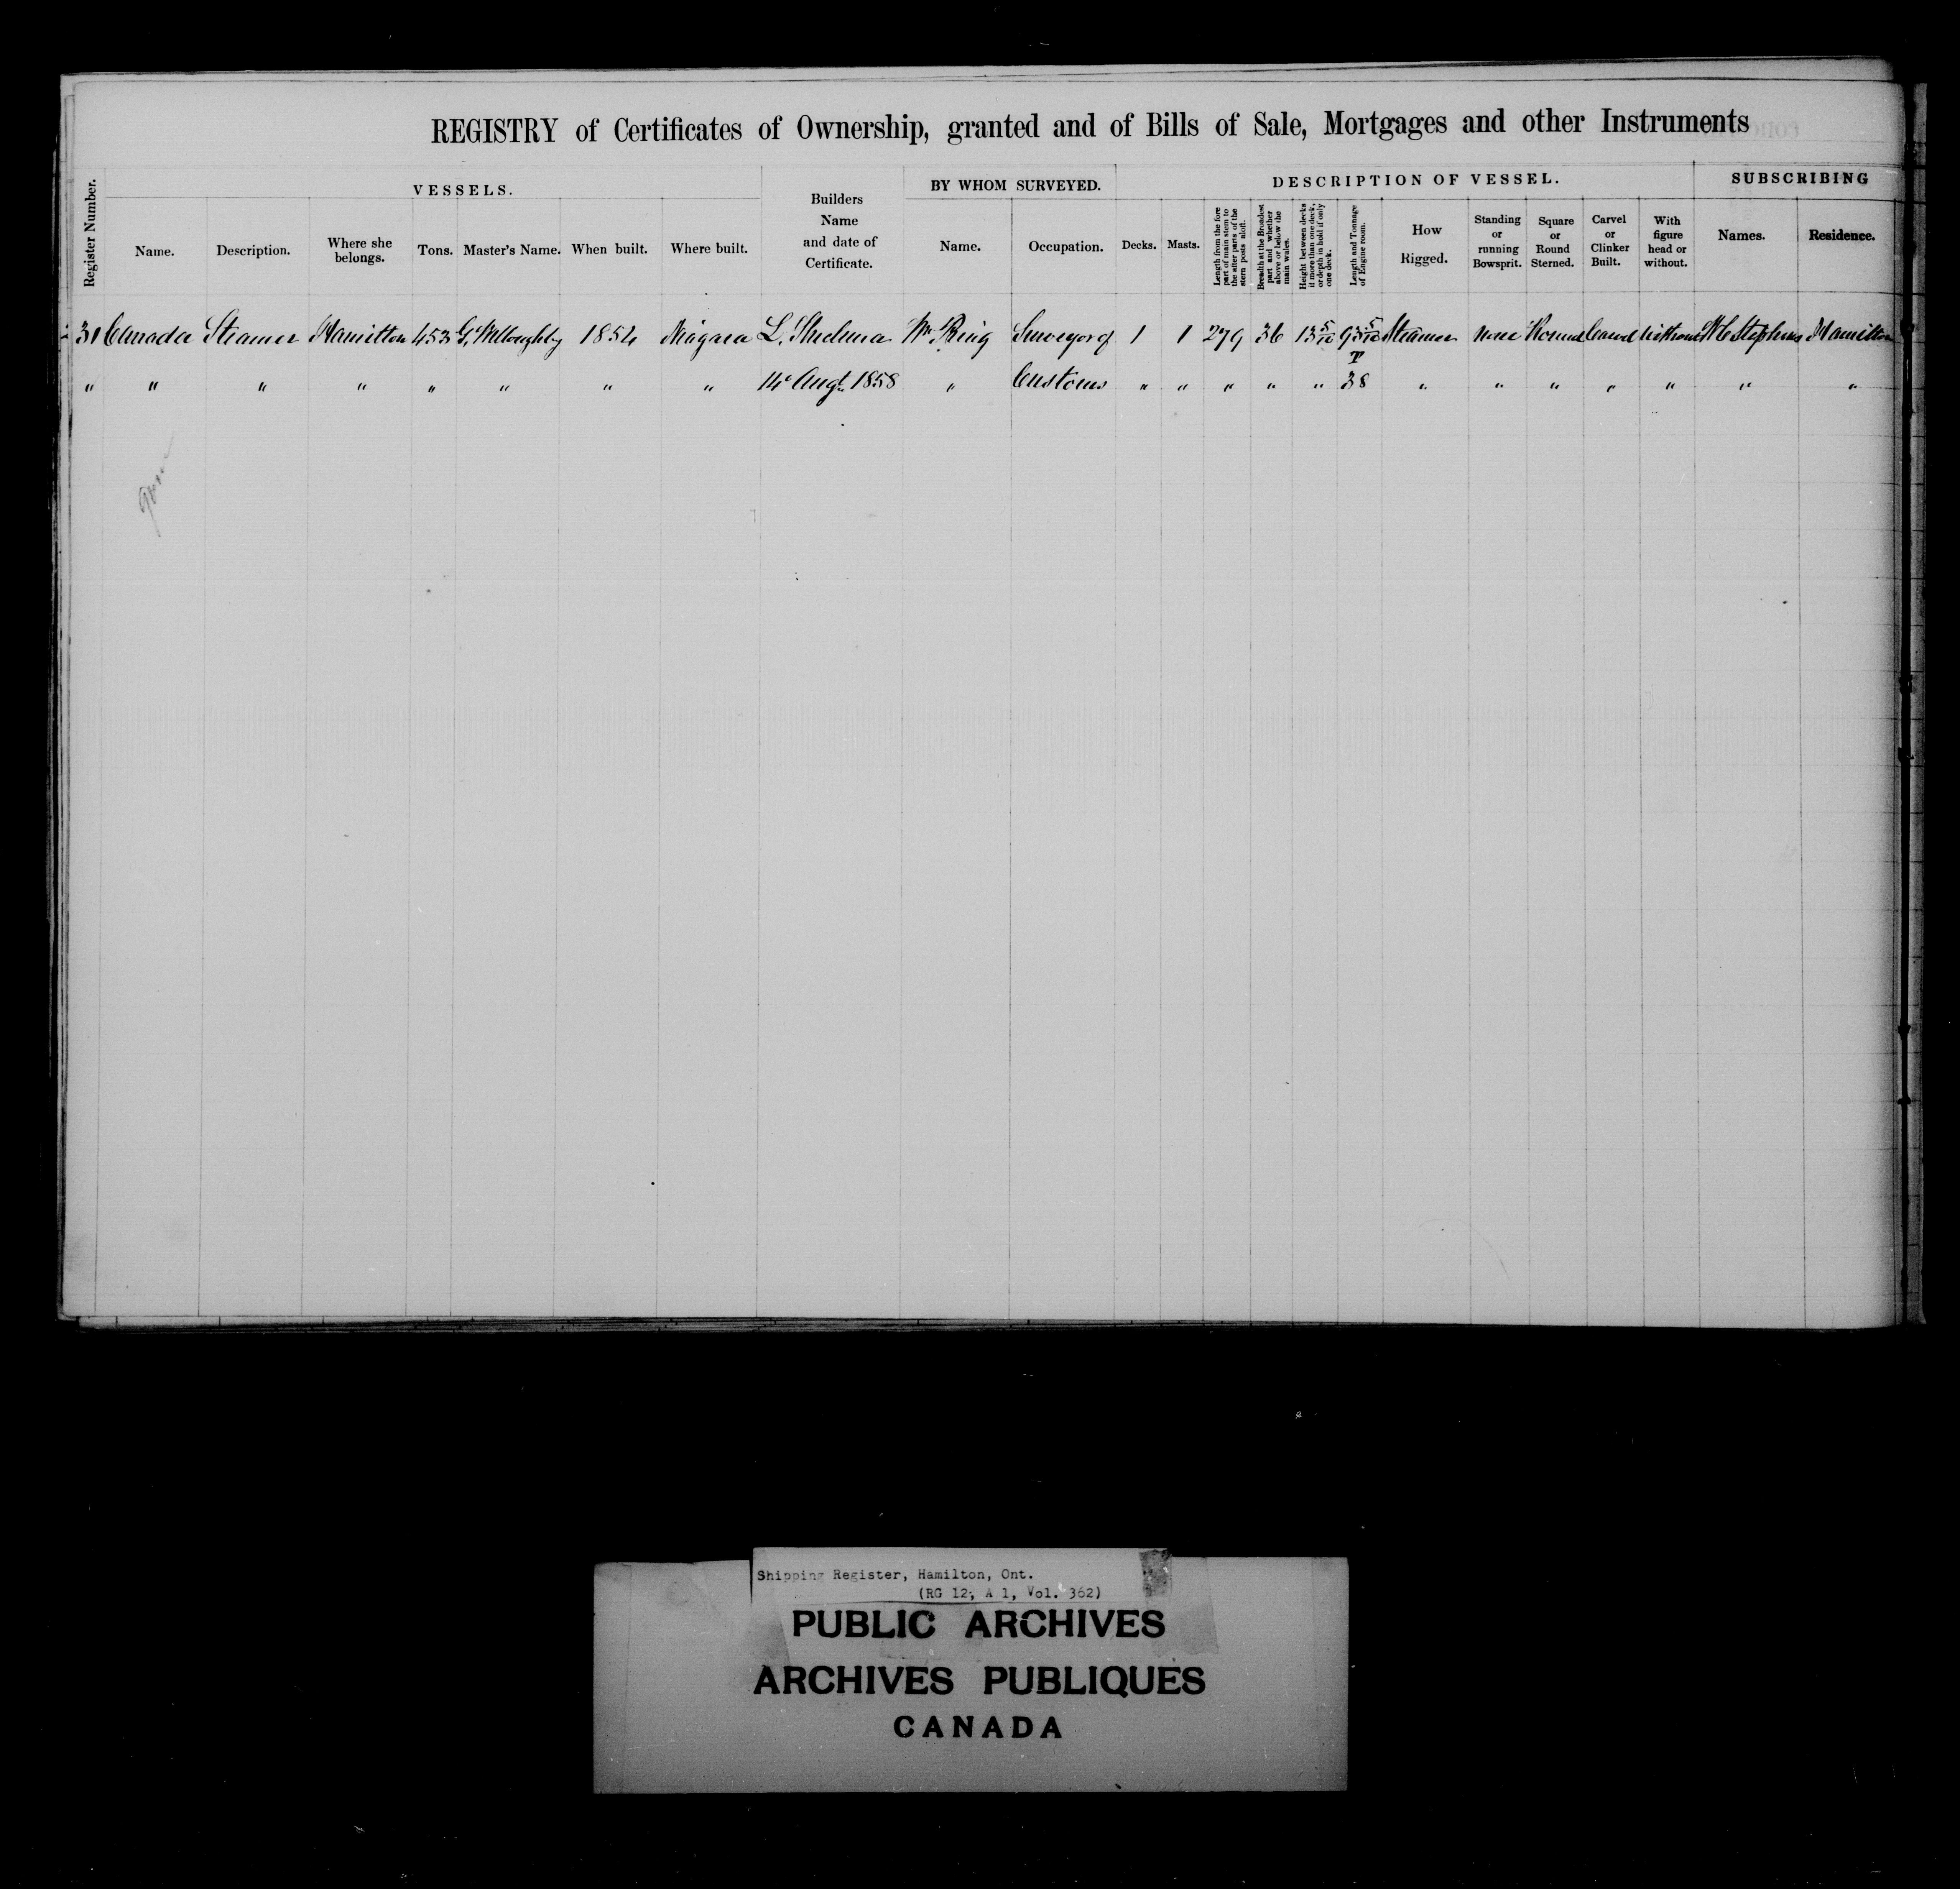 REGISTRY of Certificates of Ownership, granted and of Bills of Sale, Mortgages and other Instruments
Register Number.
VESSELS.
Name.
Description.
Where she
belongs.
Tons.
Master's Name.
When built.
Where built.
Builders
Name
and date of
Certificate.
BY WHOM SURVEYED.
Name.
Occupation.
DESCRIPTION OF VESSEL.
Decks.
Masts.
Length from the fore
part of main stem to
the after parts of the
stern posts aloft.
Breadth at the Broadest
part and whether
above or below the
main wales.
Height between decks
if more than one deck,
or depth in hold if only
one deck.
Length and Tonnage
of Engine room.
How
Rigged.
Standing
or
running
Bowsprit.
Square
or
Round
Sterned.
Carvel
or
Clinker
Built.
With
figure
head or
without.
SUBSCRIBING
Names.
Residence.
31 Canada Steamer Hamilton 453 G. Willoughby 1854 Niagara L. Wm King Surveyor of 1 1 279 36 13 5/10 93 5/10 Steamer none Round Carvel without Stephens Hamilton
" " " " " " " " 14 Augt. 1858 " Customs " " " " " T 38 " " " " " " "
Shipping Register, Hamilton, Ont.
(RG 12, A 1, Vol. 362)
PUBLIC ARCHIVES
ARCHIVES PUBLIQUES
CANADA